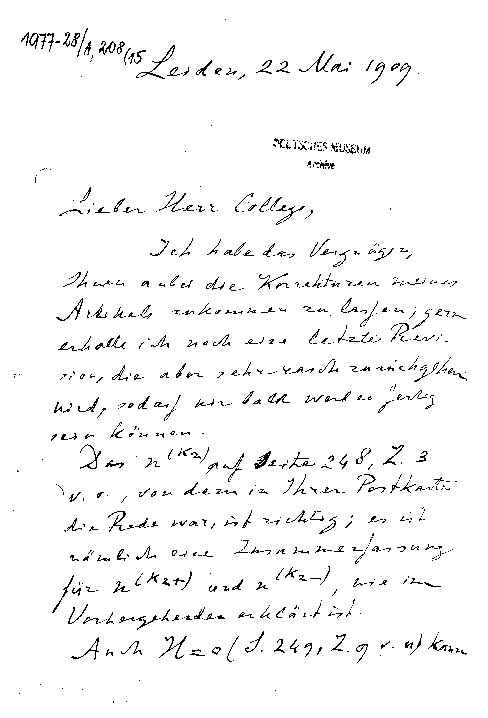 1977-28/A, 208/15
Leiden, 22 Mai 1909.
DEUTSCHES MUSEUM
Archive
Lieber Herr College,
Ich habe das Vergnügen,
Ihnen anbei die Korrekturen meines
Artikels zukommen zu lassen; gern
erhalte ich noch eine letzte Revi-
sion, die aber sehr rasch zurückgehen
wird, sodass wir bald werden fertig
sein können.
Das n(K2) auf Seite 248, Z. 3
v. o., von dem in Ihrer Postkarte
die Rede war, ist richtig; es ist
nämlich eine Zusammenfassung
für n(K2+) und n(K2-), wie im
Vorhergehenden erklärt ist.
Auch H=0 (S. 249, Z. 9 v. u) kann